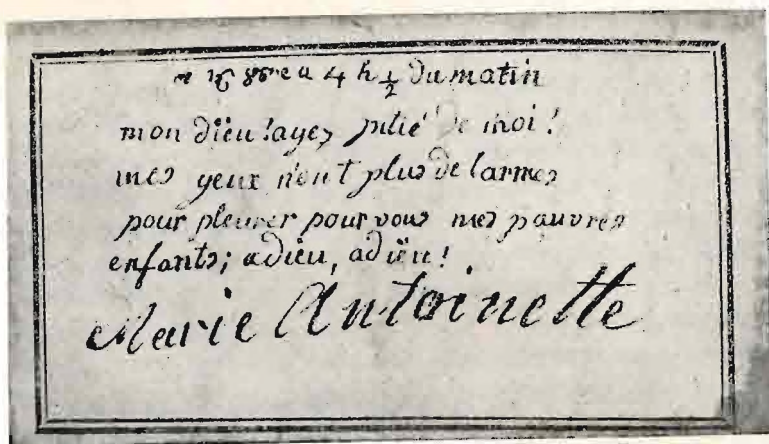 16 8bre a 4 h ½ du matin
mon dieu ! ayez pitié de moi !
mes yeux n'ont plus de larmes
pour pleurer pour vous mes pauvres
enfants ; adieu, adieu !
Marie Antoinette